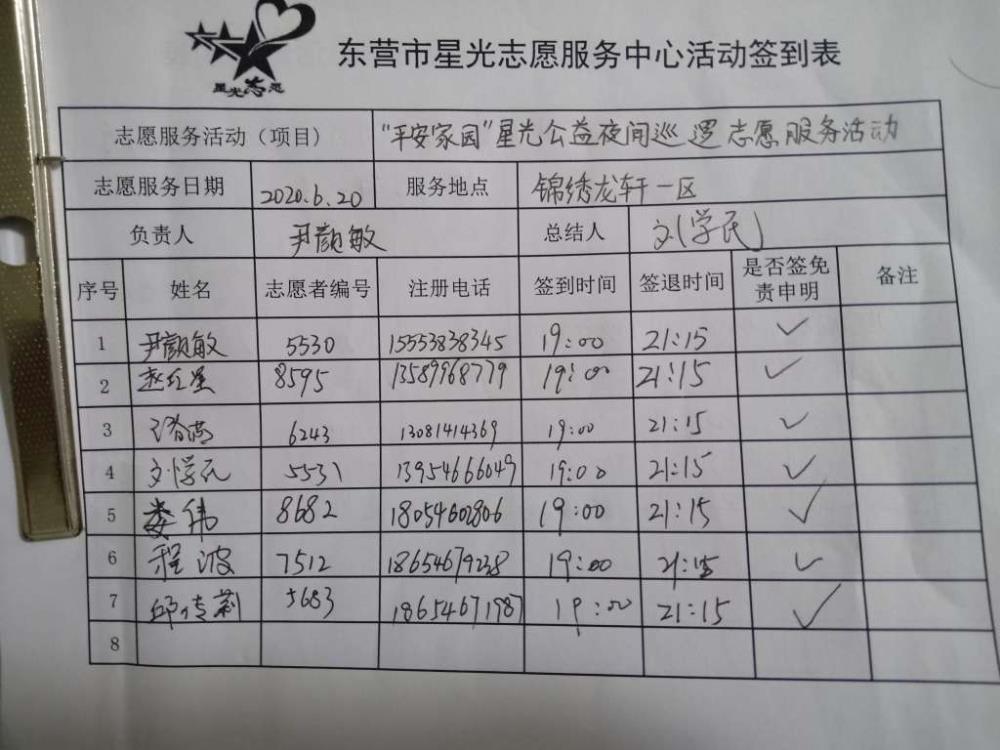 星光志愿
东营市星光志愿服务中心活动签到表
志愿服务活动（项目） “平安家园”星光公益夜间巡逻志愿服务活动
志愿服务日期 2020.6.20 服务地点 锦绣龙轩一区
负责人 尹颜敏 总结人 刘学民
序号 姓名 志愿者编号 注册电话 签到时间 签退时间 是否签免责申明 备注
1 尹颜敏 5530 15553838345 19:00 21:15 ✓
2 赵红星 8595 13589968779 19:00 21:15 ✓
3 6243 13081414369 19:00 21:15 ✓
4 刘学民 5531 13954666049 19:00 21:15 ✓
5 娄伟 8682 18054602806 19:00 21:15 ✓
6 程波 7512 18654679238 19:00 21:15 ✓
7 邱传莉 5683 18654671987 19:00 21:15 ✓
8